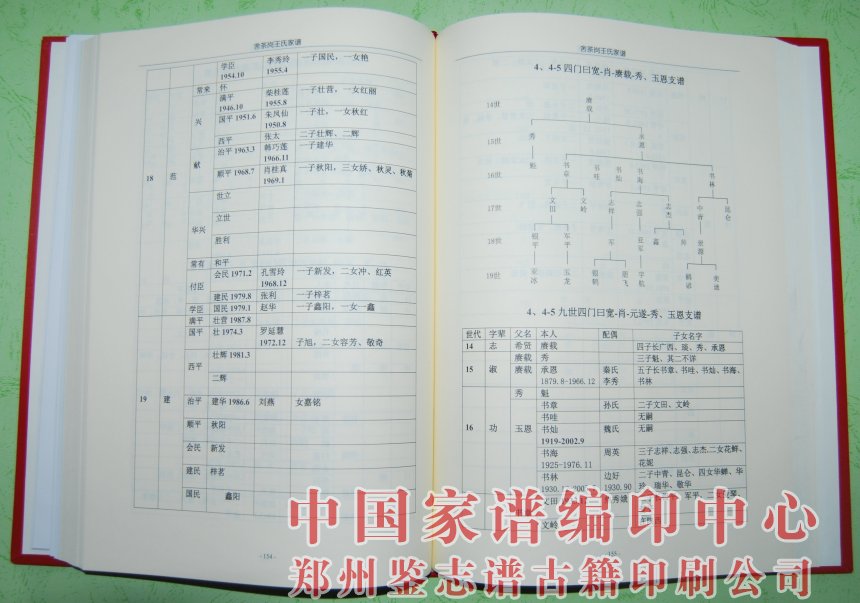 苦茶岗王氏家谱
学臣 李秀玲 一子国民，一女艳
1954.10 1955.4
常来 怀
18 范 兴 满平 柴桂莲 一子壮营，一女红丽
1946.10 1955.8
国平 1951.6 朱凤仙 一子壮，一女秋红
1950.8
西平 张太 二子壮辉、二辉
献 治平 1963.3 韩巧莲 一子建华
1966.11
顺平 1968.7 肖桂真 一子秋阳，三女娇、秋灵、秋菊
1969.1
世立
华兴 立世
胜利
常有 和平
付臣 会民 1971.2 孔雪玲 一子新发，二女冲、红英
1968.12
建民 1979.8 张利 一子梓茗
学臣 国民 1979.1 赵华 一子鑫阳，一女一鑫
19 建 满平 壮营 1987.8
国平 壮 1974.3 罗延慧
1972.12 子旭，二女容芳、敬奇
西平 壮辉 1981.3
二辉
治平 建华 1986.6 刘燕 女嘉铭
顺平 秋阳
会民 新发
建民 梓茗
国民 鑫阳
- 154 -
苦茶岗王氏家谱
4、4-5 四门曰宽-肖-赓载-秀、玉恩支谱
14世 赓载
15世 秀 承恩
16世 魁 书章 书哇 书灿 书海 书林
17世 文田 文岭 志祥 志强 志杰 中青 昆仑
18世 银平 军平 军 亚军 鑫 帅 景源
19世 亚冰 玉龙 朝飞 宇航
4、4-5 九世四门曰宽-肖-元遂-秀、玉恩支谱
世代 字辈 父名 本人 配偶 子女名字
14 志 希贤 赓载 四子长广西、琰、秀、承恩
15 淑 赓载 秀 三子魁，其二不详
赓载 承恩 秦氏 五子长书章、书哇、书灿、书海、
1879.8-1966.12 李秀 书林
16 功 秀 魁
玉恩 书章 孙氏 二子文田、文岭
书哇 无嗣
书灿 魏氏 无嗣
1919-2002.9
书海 周英 三子志祥、志强、志杰二女花鲜、
1925-1976.11 花妮
书林 边好 二子中青、昆仑、四女华蝉、华
1930.90 珍、瑞华、敬华
文岭
- 155 -
中国家谱编印中心
郑州鉴志谱古籍印刷公司